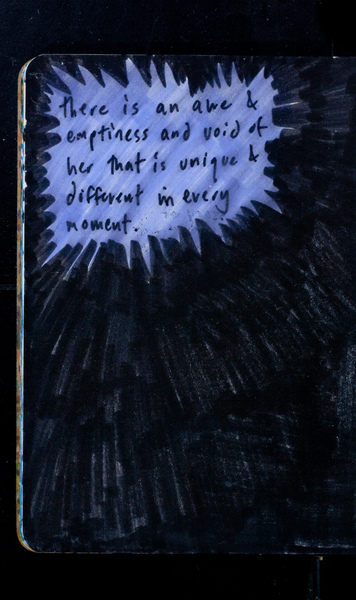 there is an awe &
emptiness and void of
her that is unique &
different in every
moment.